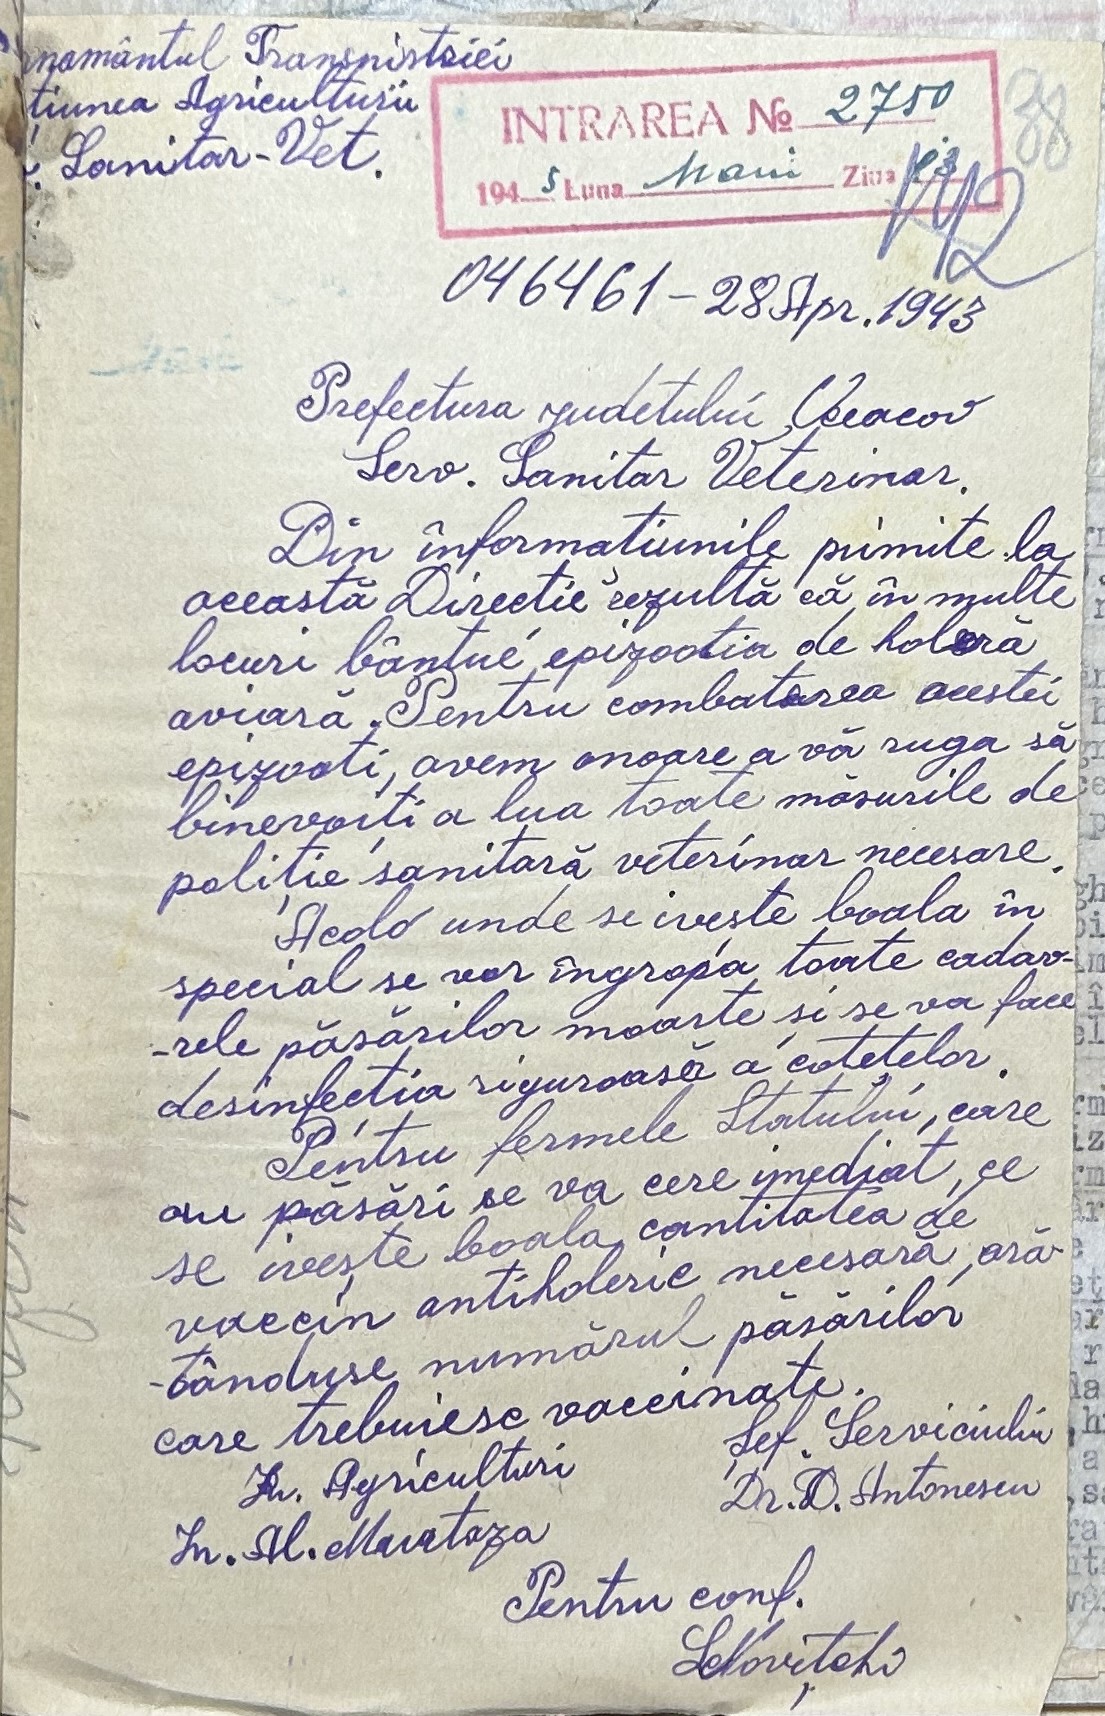 namântul Transnistriei
tiunea Agriculturii
Sanitar-Vet.
INTRAREA № 2750
194 5 Luna Maiu Ziua
38
046461 - 28 Apr. 1943
Prefectura judetului Oceacov
Serv. Sanitar Veterinar.
Din informatiunile primite la
această Directie rezultă că în multe
locuri bântue epizootia de holeră
aviară. Pentru combaterea acestei
epizooti, avem onoare a vă ruga să
binevoiti a lua toate măsurile de
politie sanitară veterinar necesare.
Acolo unde se iveste boala în
special se vor îngropa toate cadav-
-rele păsărilor moarte si se va face
desinfectia riguroasă a cotetelor.
Pentru fermele Statului, care
au păsări se va cere imediat, ce
se ivește boala, cantitatea de
vaccin antiholeric necesară, ară-
-tânduse numărul păsărilor
care trebuiesc vaccinate.
Sef. Serviciului
Agriculturi
Dr. D. Antonescu
In. Al.
Pentru conf.